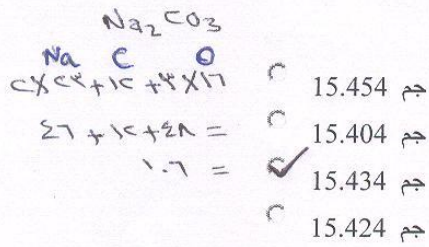 Na₂CO₃
Na C O
٢×٢٣+١٢+٣×١٦
٤٦+١٢+٤٨=
١٠٦ =
15.454 جم
15.404 جم
15.434 جم
15.424 جم